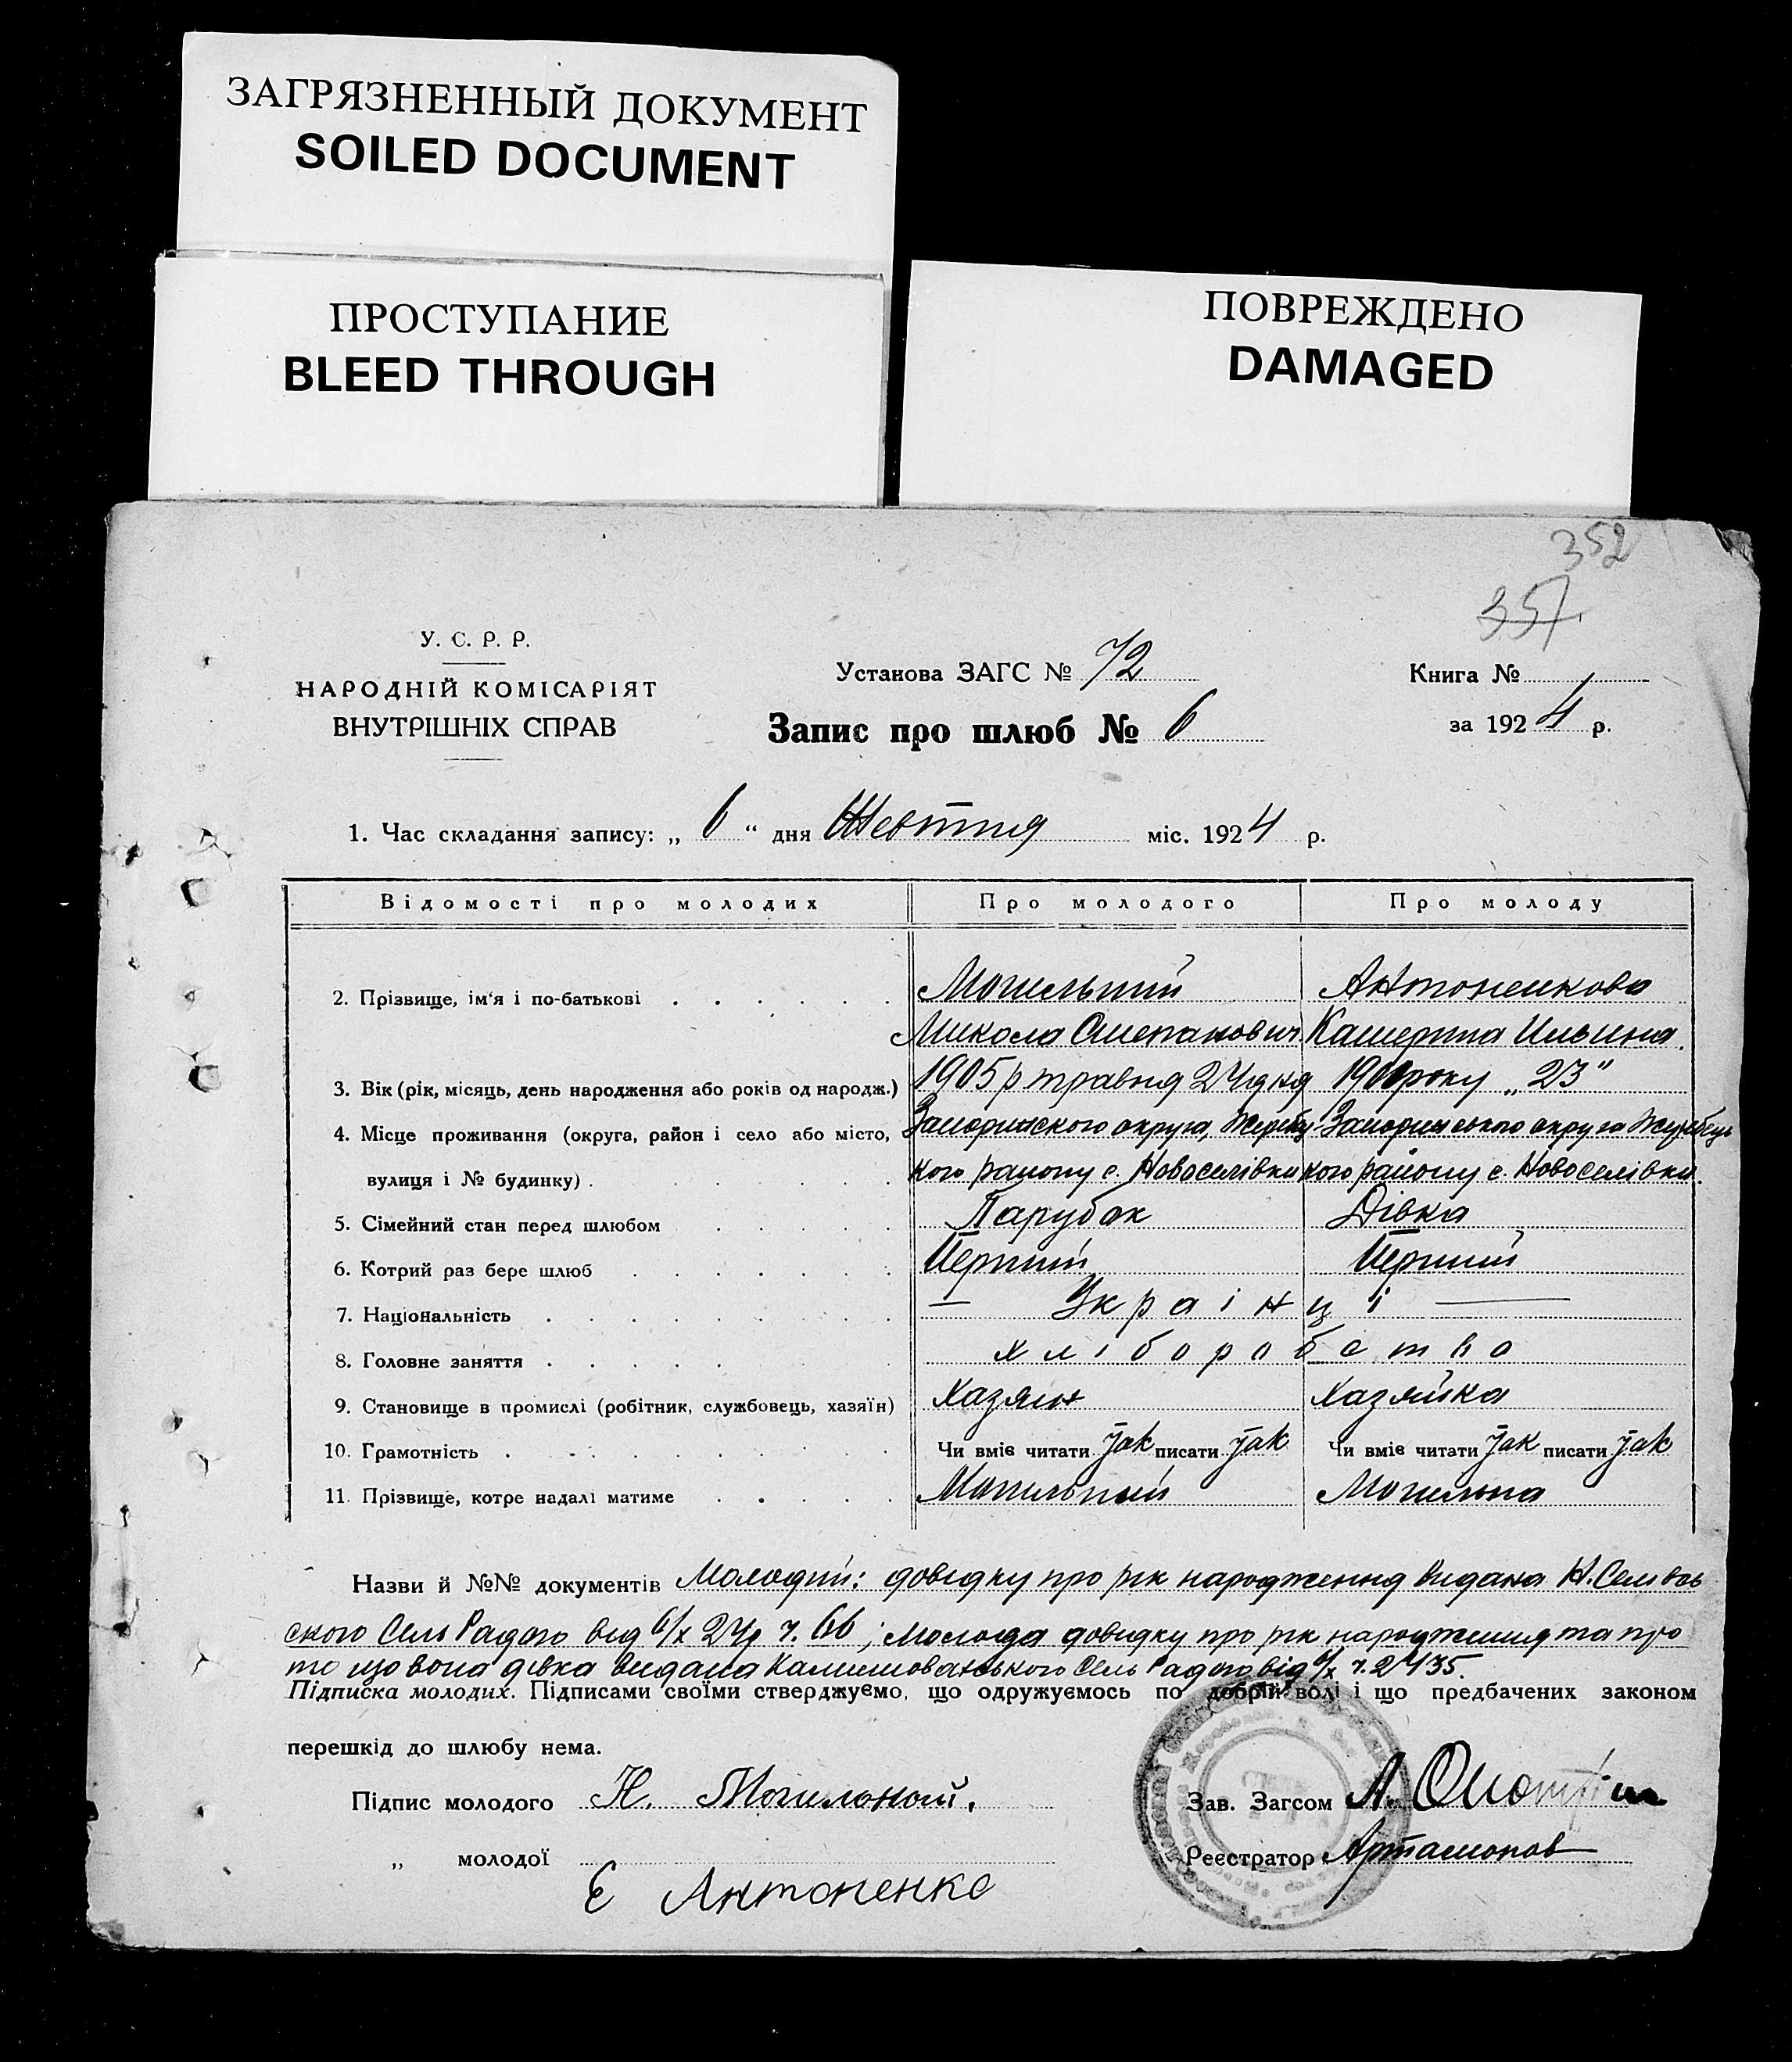 ЗАГРЯЗНЕННЫЙ ДОКУМЕНТ
SOILED DOCUMENT
ПРОСТУПАНИЕ
BLEED THROUGH
ПОВРЕЖДЕНО
DAMAGED
352
357
У. С. Р. Р.
НАРОДНІЙ КОМІСАРІЯТ
ВНУТРІШНІХ СПРАВ
Установа ЗАГС № 72
Запис про шлюб № 6
Книга №
за 1924 р.
1. Час складання запису: „ 6 “ дня Жовтня міс. 1924 р.
Відомості про молодих Про молодого Про молоду
2. Прізвище, ім'я і по-батькові Могильний Антоненкова
Микола Степанович Катерина Ильина.
3. Вік (рік, місяць, день народження або років од народж.) 1905 р травня 24 дня року „23“
4. Місце проживання (округа, район і село або місто, округа,
вулиця і № будинку) . кого району с. Новоселівки кого району с. Новоселівки.
5. Сімейний стан перед шлюбом Парубок Дівка
6. Котрий раз бере шлюб Перший Перший
7. Національність — Українці —
8. Головне заняття хліборобство
9. Становище в промислі (робітник, службовець, хазяїн) Хазяин Хазяйка
10. Грамотність Чи вміє читати так писати так Чи вміє читати так писати так
11. Прізвище, котре надалі матиме Могильний Могильна
Назви й №№ документів Молодий: довідку про рік народження видана Н.Селивсь
ского Сель Радою від 6/X 24р ч. 66; молода довидку про рік народження та про
те що вона дівка видана Сель Радою від 6/X ч.
Підписка молодих. Підписами своїми стверджуємо, що одружуємось по добрій волі і що предбачених законом
перешкід до шлюбу нема.
Підпис молодого Н. Могильной.
„ молодої Є Антоненко
Зав. Загсом А.
Реєстратор Артамонов